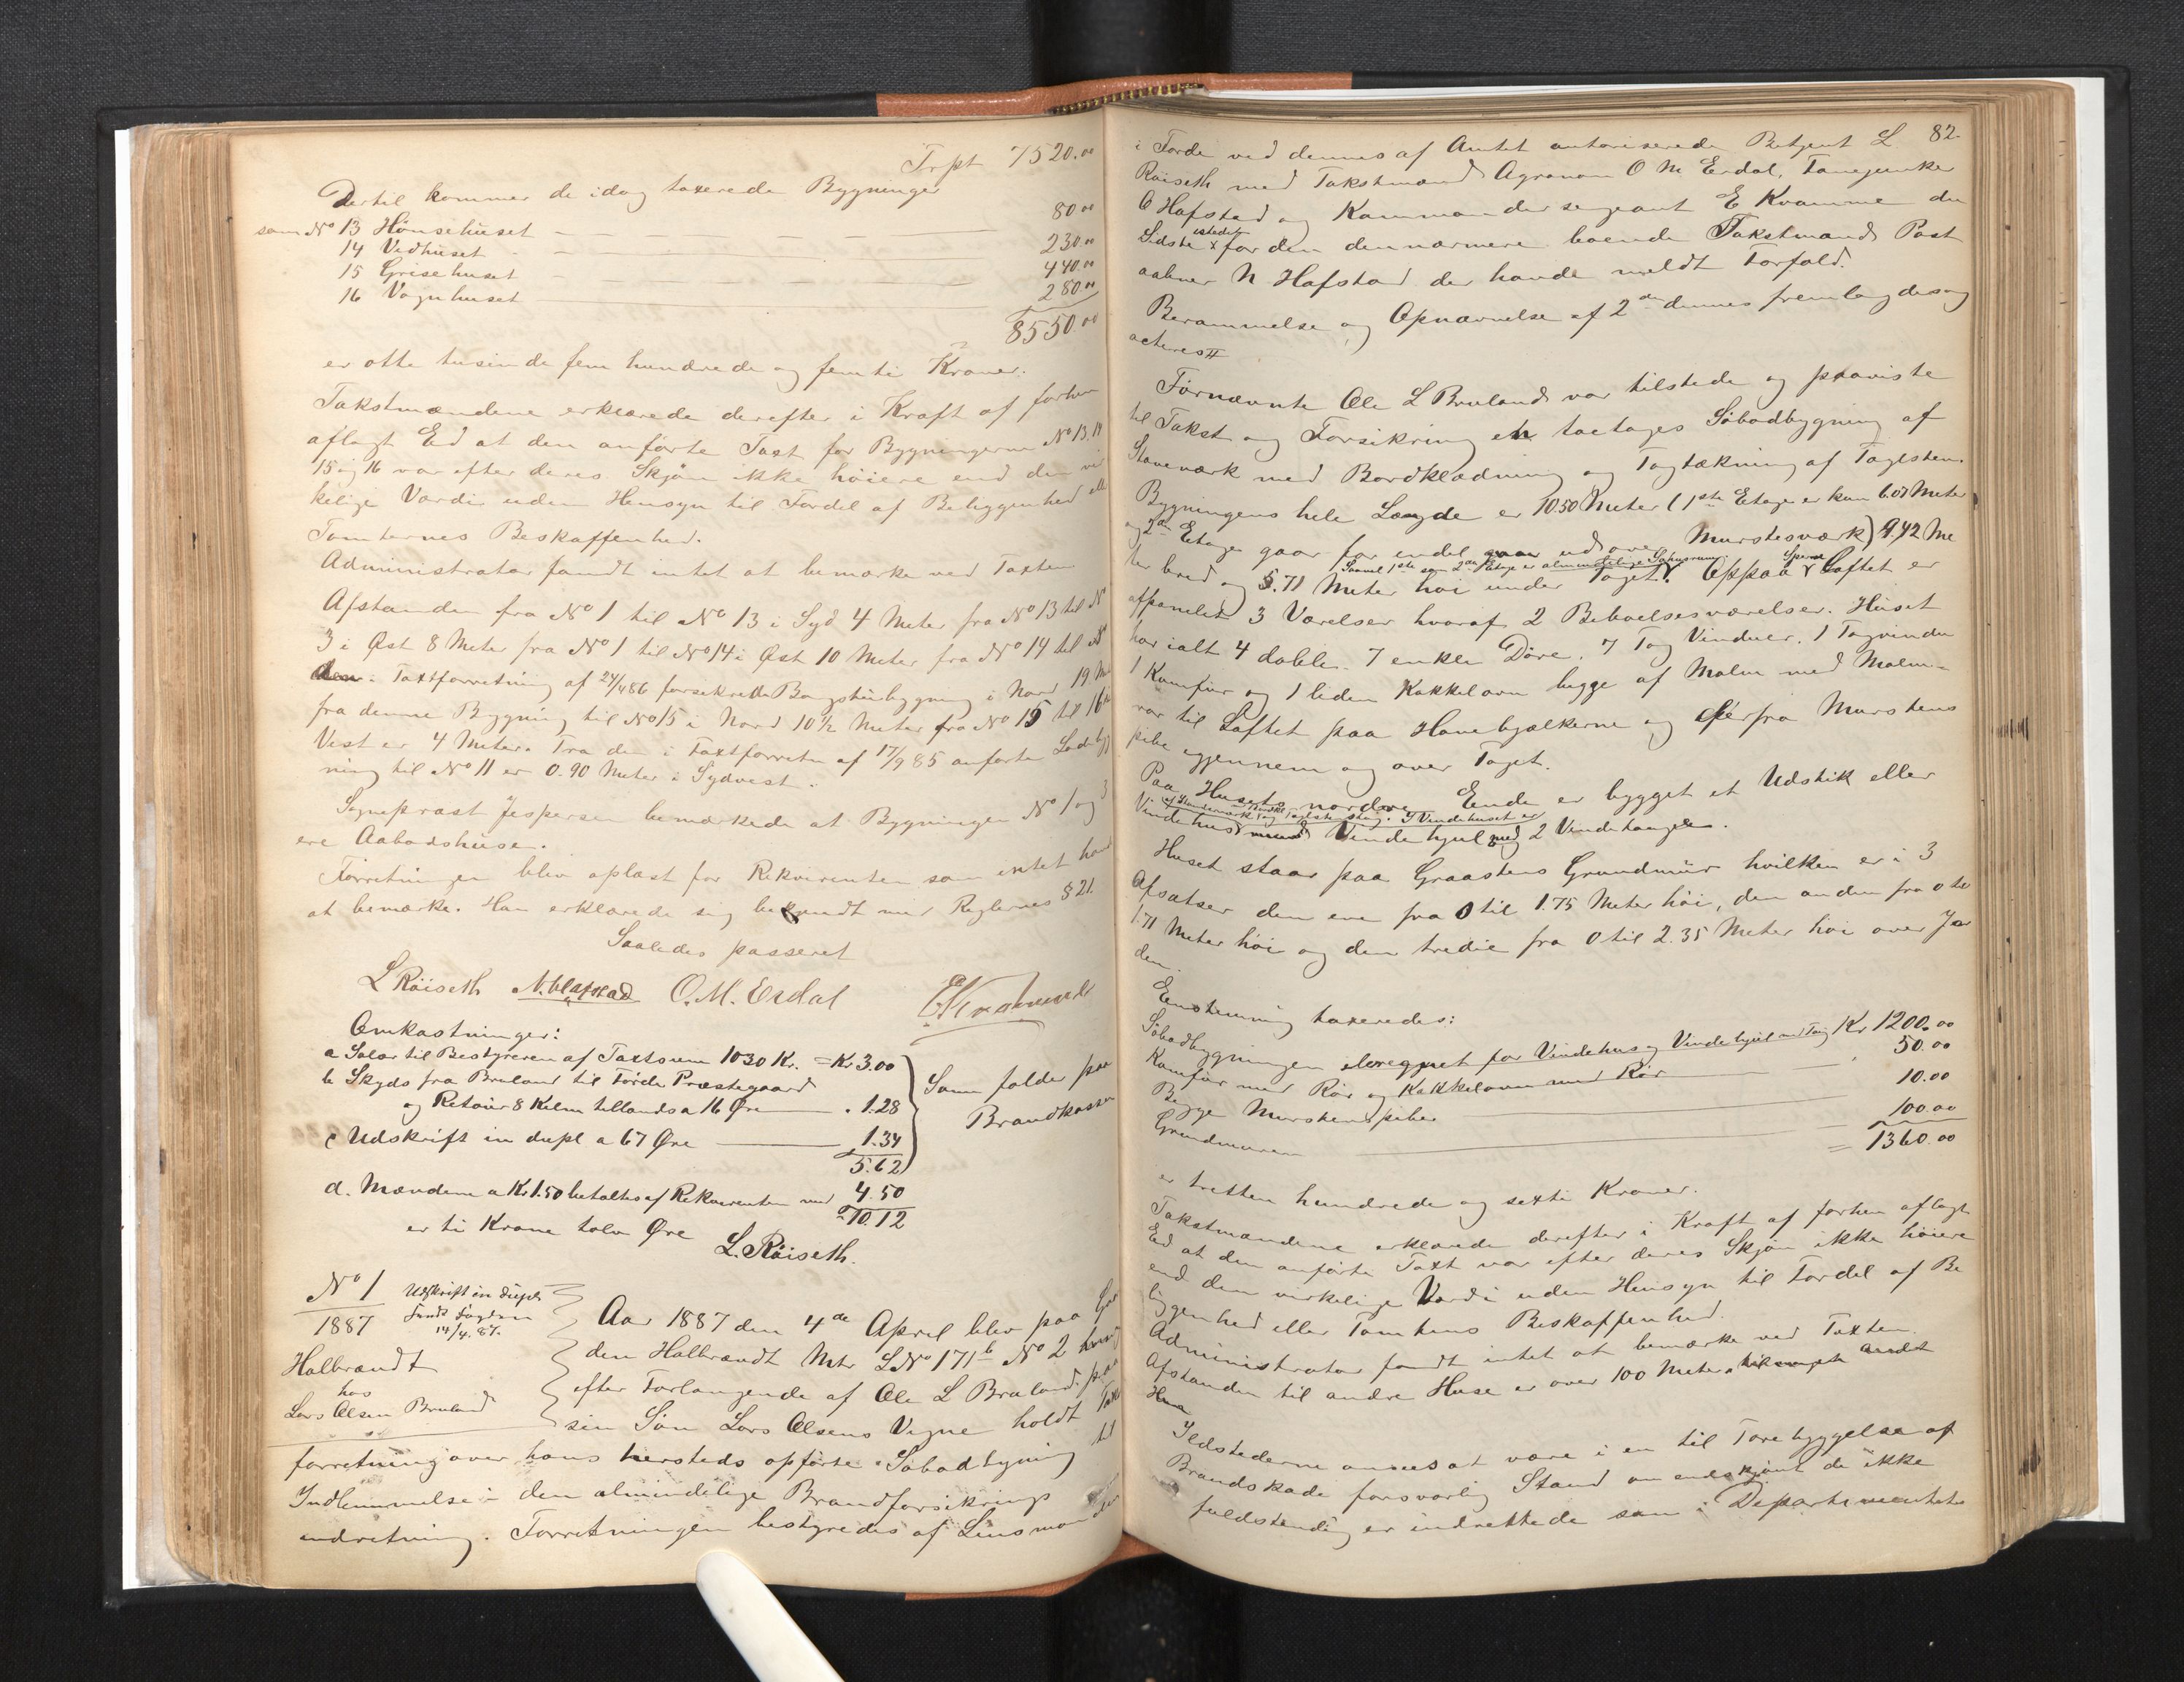 Trpt 7520.00
Dertil kommer de idag taxerede Bygninger
som No 13 Hönsehuset — — — 80.00
14 Vedhuset — — 230.00
15 Grisehuset — — 440.00
16 Vognhuset — 280.00
8550.00
er otte tusinde fem hundrede og femti Kroner.
Takstmændene erklærede derefter i Kraft af forhen
aflagt Ed at den anförte Taxt for Bygningerne No 13, 14
15 og 16 var efter deres Skjön ikke höiere end den vir
kelige Værdi uden Hensyn til Fordel af Beliggenhed ell
Tomternes Beskaffenhed.
Administrator fandt intet at bemærke ved Taxten
Afstanden fra No 1 til No 13 i Syd 4 Meter fra No 13 til No
3 i Øst 8 Meter fra No 1 til No 14 i Øst 10 Meter fra No 14 til
i Taxtforretning af 24/4 86 forsikrede Borgstubygning i Nord 19 Me
fra denne Bygning til No 15 i Nord 10 1/2 Meter fra No 15 til 16
Vest er 4 Meter. Fra den i Taxtforretn af 17/9 85 anförte Ladebyg
ning til No 11 er 0.90 Meter i Sydvest.
Sognepræst Jespersen bemærkede at Bygningen No 1 og 3
ere Aabodshuse.
Forretningen blev oplæst for Rekvirenten som intet havd
at bemærke. Han erklærede sig bekjendt med Reglernes § 21.
Saaledes passeret
L Röiseth N. Hafstad O. M. Erdal E Kvamme
Omkostninger:
a Salær til Bestyreren af Taxtsum 1030 Kr. = Kr 3.00
b Skyds fra Bruland til Förde Præstegaard
og Retour 8 Kilm tillands a 16 Øre — " 1.28
c Udskrift in dupl a 67 Øre — 1.34
5.62
Som falder paa
Brandkassen
d. Mændene a Kr 1.50 betaltes af Rekvirenten med 4.50
10.12
er ti Krone tolv Øre
L. Röiseth.
No 1
1887
Udskrift in dupl
Sendt Fogden
14/4. 87.
Halbrændt
hos
Lars Olsen Bruland
Aar 1887 den 4de April blev paa Gaar
den Halbrændt Mtr LNo 171b No 2 hvor
efter Forlangende af Ole L Bruland paa
sin Sön Lars Olsens Vegne holdt Taxt
forretning over hans hersteds opförte Söbodbyning til
Indlemmelse i den almindelige Brandforsikrings
indretning. Forretningen bestyredes af Lensmanden
82.
i Förde ved dennes af Amtet autoriserede Betjent L
Röiseth med Takstmænd Agronom O M Erdal, Fanejunker
O Hafstad og Kommandersergeant E Kvamme den
Sidste istedet for den den nærmere boende Takstmand Post
aabner N Hafstad der havde meldt Forfald.
Berammelse og Opnævnelse af 2den dennes fremlagdes og
acteres
Förnævnte Ole L Bruland var tilstede og paaviste
til Takst og Forsikring en toetages Söbodbygning af
Staveværk med Bordklædning og Tagtækning af Taglsten.
Bygningens hele Længde er 10.50 Meter (1ste Etage er kun 6.07 Meter
og 2den Etage gaar for endel ud over Murstesværk) 9.42 Me
ter bred og 5.71 Meter höi under Taget. Saavel 1ste som 2den Etage er almindelige Söhusrum. Oppaa Sperre Loftet er
afpanelet 3 Værelser hvoraf 2 Beboelsesværelser. Huset
har ialt 4 doble. 7 enkle Döre. 7 Fag Vinduer. 1 Tagvindu
1 Komfur og 1 liden Kakkelovn begge af Malm med Malm-
rör til Loftet paa Hanebjælkerne og derfra Murstens
pibe igjennem og over Taget.
Paa Husets nordre Ende er bygget et Udstik eller
Vindehus af Staveværk og Bordkl. Taglstenstag. I Vindehuset er Vindehjul med 2 Vindetouge.
Huset staar paa Graastens Grundmur hvilken er i 3
Afsatser den ene fra 0 til 1.75 Meter höi, den anden fra 0 til
1.71 Meter höi og den tredie fra 0 til 2.35 Meter höi over Jor
den.
Enstemmig taxeredes:
Söbodbygningen iberegnet for Vindehus og Vindehjul med Toug Kr 1200.00
Komfur med Rör og Kakkelovn med Rör — " 50.00
Begge Murstenspiber — 10.00
Grundmuren — 100.00
= 1360.00
er tretten hundrede og sexti Kroner.
Takstmændene erklærede derefter i Kraft af forhen aflagt
Ed at den anförte Taxt var efter deres Skjön ikke höiere
end den virkelige Værdi uden Hensyn til Fordel af Be
liggenhed eller Tomtens Beskaffenhed.
Administrator fandt intet at bemærke ved Taxten.
Afstanden til andre Huse er over 100 Meter
Ildstederne ansees at være i en til Forebyggelse af
Brandskade forsvarlig Stand om endskjönt de ikke
fuldstændig er indrettede som i Departementets